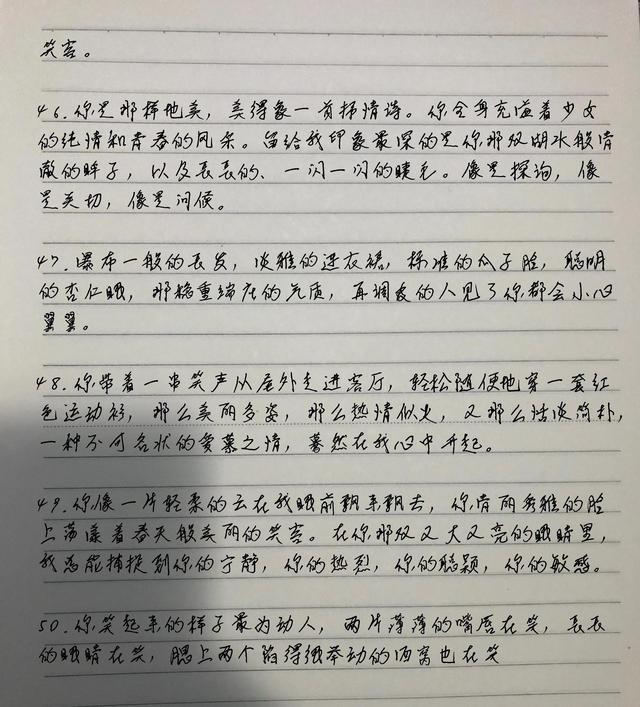 笑容。
46.你是那样地美，美得象一首抒情诗。你全身充溢着少女
的纯情和青春的风采。留给我印象最深的是你那双湖水般清
澈的眸子，以及长长的、一闪一闪的睫毛。像是探询，像
是关切，像是问候。
47.瀑布一般的长发，淡雅的连衣裙，标准的瓜子脸，聪明
的杏仁眼，那稳重端庄的气质，再调皮的人见了你都会小心
翼翼。
48.你带着一串笑声从屋外走进客厅，轻松随便地穿一套红
色运动衫，那么美丽多姿，那么热情似火，又那么恬淡简朴，
一种不可名状的爱慕之情，蓦然在我心中升起。
49.你像一片轻柔的云在我眼前飘来飘去，你清丽秀雅的脸
上荡漾着春天般美丽的笑容。在你那双又大又亮的眼睛里，
我总能捕捉到你的宁静，你的热烈，你的聪颖，你的敏感。
50.你笑起来的样子最为动人，两片薄薄的嘴唇在笑，长长
的眼睛在笑，腮上两个陷得很举动的酒窝也在笑